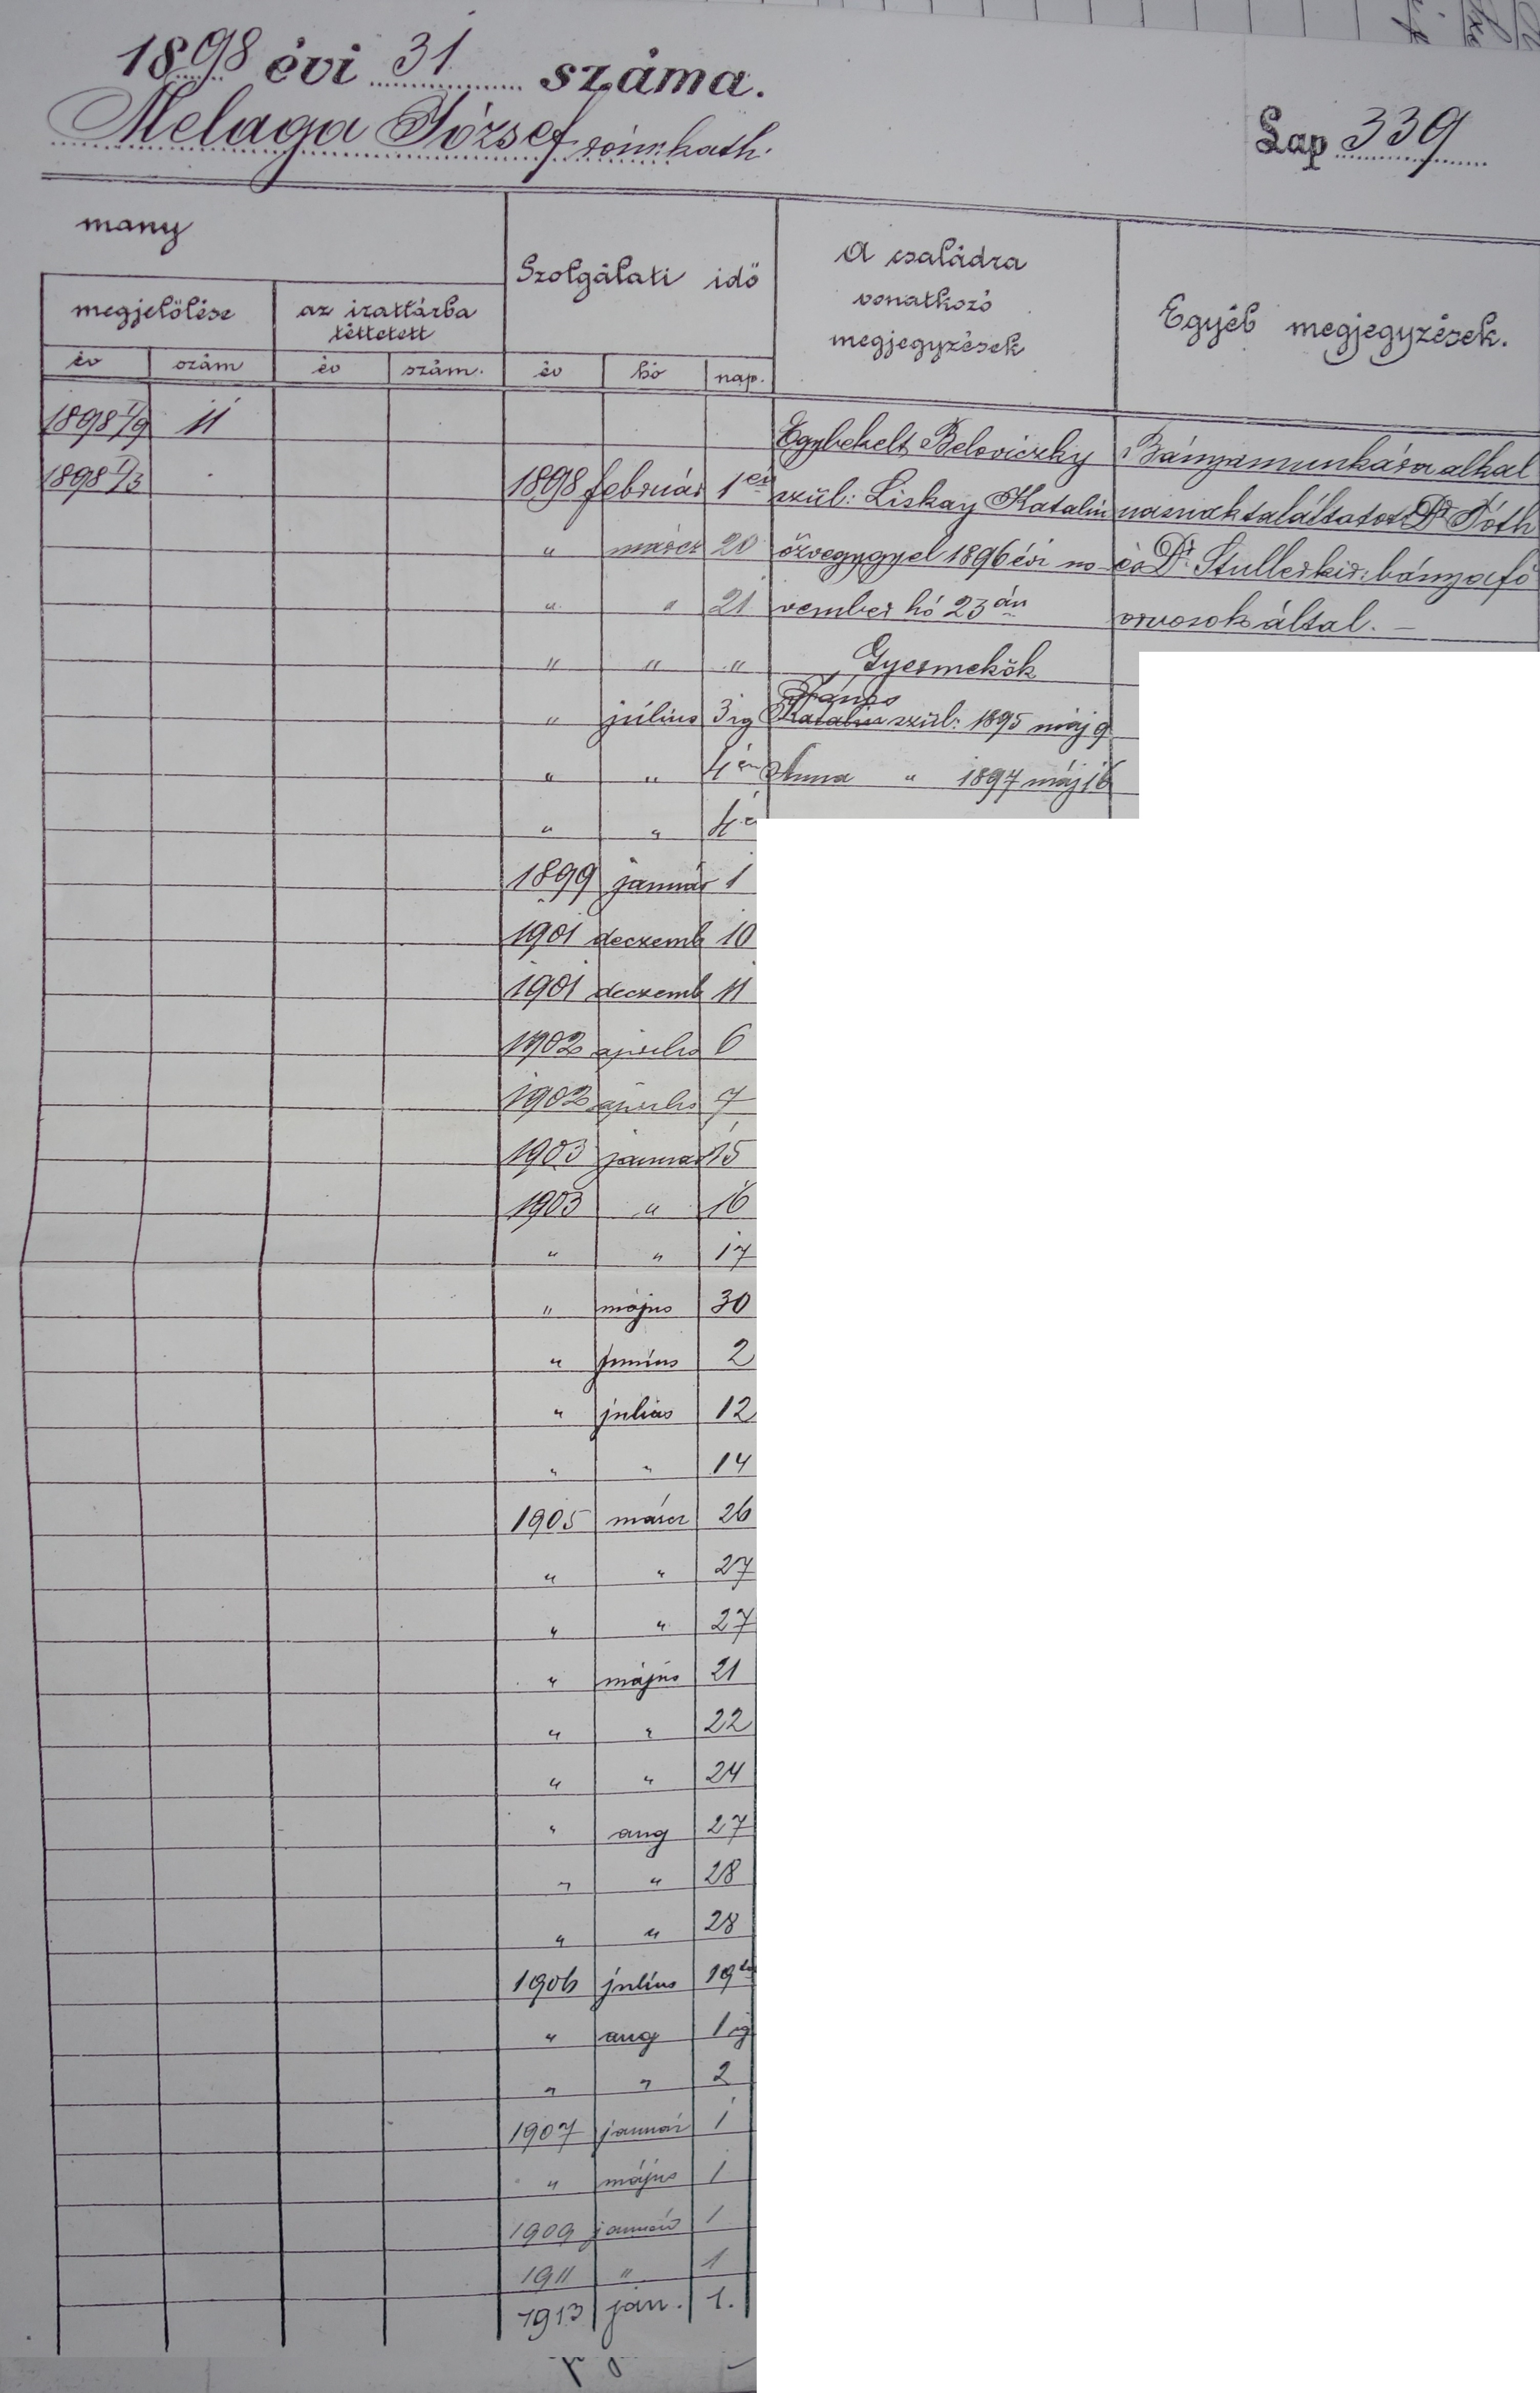 1898 évi 31 száma.
Melaga József róm. kath.
Lap 339
many
Szolgálati idő
A családra vonatkozó megjegyzések
Egyéb megjegyzések.
megjelölése
az irattárba tétetett
év szám év szám. év hó nap.
1898 I/9 11 Egybekelt Beloviczky Bányamunkára alkal
1898 I/3 1898 február 1én szül: Liskay Katalin masnak találtatott Dr Tóth
" márcz 20 özvegygyel 1896 évi no- és Dr. Stuller kir: bánya fő
" " 21 vember hó 23án orvosok által. –
" " " Gyermekök
János
" július 3ig Katalin szül: 1895 máj 9
" " 4én Anna " 1897 máj 16
" " 4é
1899 január 1
1901 deczemb 10
1901 deczemb 11
1902 április 6
1902 április 7
1903 január 15
1903 " 16
" " 17
" május 30
" június 2
" július 12
" " 14
1905 márcz 26
" " 27
" " 27
" május 21
" " 22
" " 24
" aug 27
" " 28
" " 28
1906 július 19
" aug 1ig
" " 2
1907 január 1
" május 1
1909 január 1
1911 " 1
1913 jan. 1.